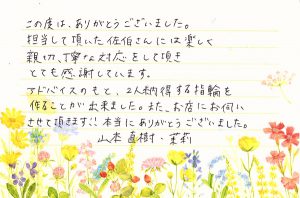 この度は、ありがとうございました。
担当して頂いた佐伯さんには楽しく
親切、丁寧な対応をして頂き
とても感謝しています。
アドバイスのもと、2人納得する指輪を
作ることが出来ました。また、お店にお伺い
させて頂きます!!本当にありがとうございました。
山本 直樹・茉莉